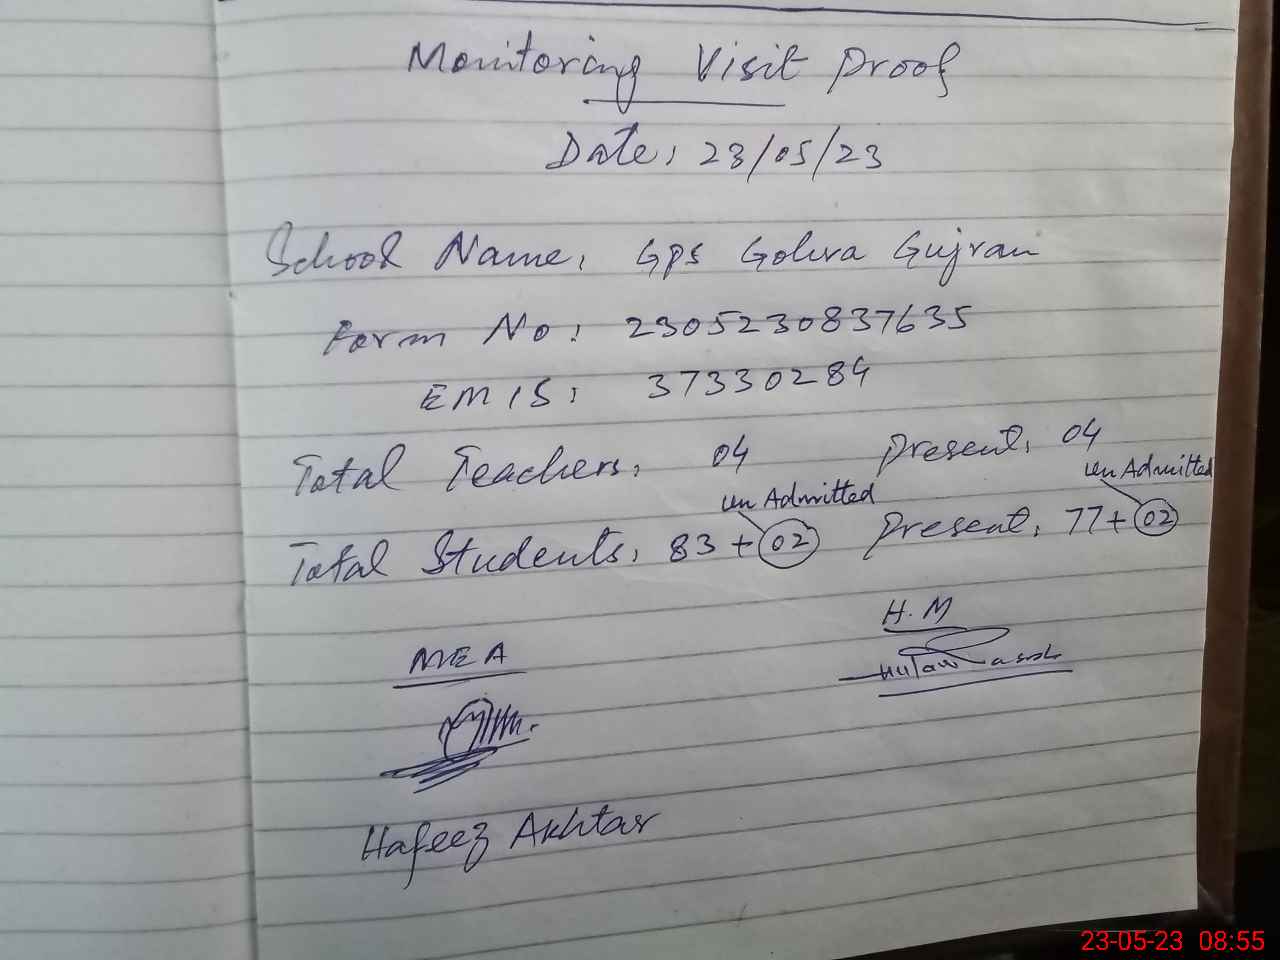 Monitoring Visit Proof
Date: 23/05/23
School Name: GPS Gohra Gujran
Form No: 2305230837635
EMIS: 37330284
Total Teachers: 04 Present: 04
un Admitted un Admitted
Total Students: 83 + 02 Present: 77 + 02
H.M
MEA
Hafeez Akhtar
23-05-23 08:55